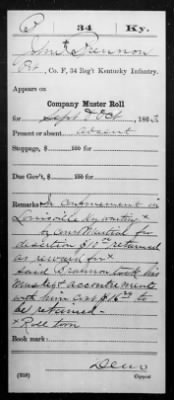 34 Ky.
Brannon
Co. F, 34 Reg't Kentucky Infantry.
Appears on
Company Muster Roll
for Sept & Oct, 1863
Present or absent Absent
Stoppage, $ 100 for
Due Gov't, $ 100 for
Remarks: In confinement in
Louisville awaiting x
by court Martial for
desertion $10 returned
as reward for x
said Brannon took his
Musket & accoutrements
with him cost $ to
be returned -
x Roll torn
Book mark:
(358) Copyist.